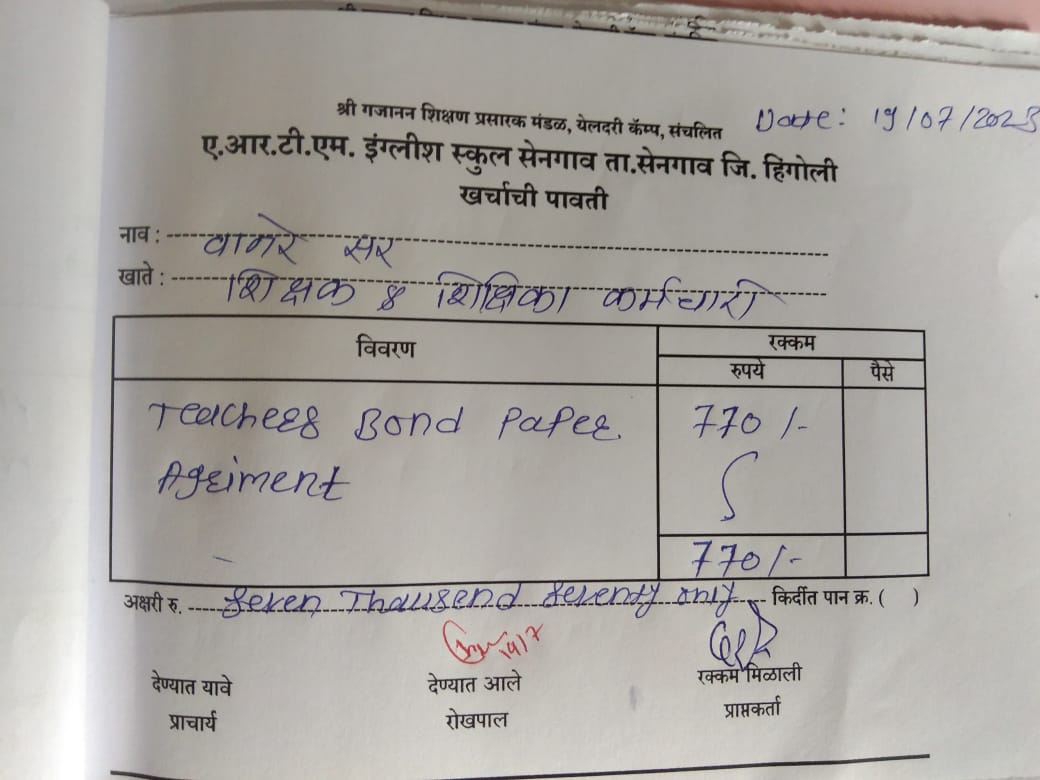 श्री गजानन शिक्षण प्रसारक मंडळ, येलदरी कॅम्प, संचलित Date: 19/07/2023
ए.आर.टी.एम. इंग्लीश स्कुल सेनगाव ता.सेनगाव जि. हिंगोली
खर्चाची पावती
नाव : वागरे सर
खाते : शिक्षक & शिक्षिका कर्मचारी
विवरण रक्कम
रुपये पैसे
Teachers Bond Paper 770/-
Agriment
770/-
अक्षरी रु. Seven Thausend Seventy only किर्दीत पान क्र. ( )
देण्यात यावे देण्यात आले रक्कम मिळाली
प्राचार्य रोखपाल प्राप्तकर्ता